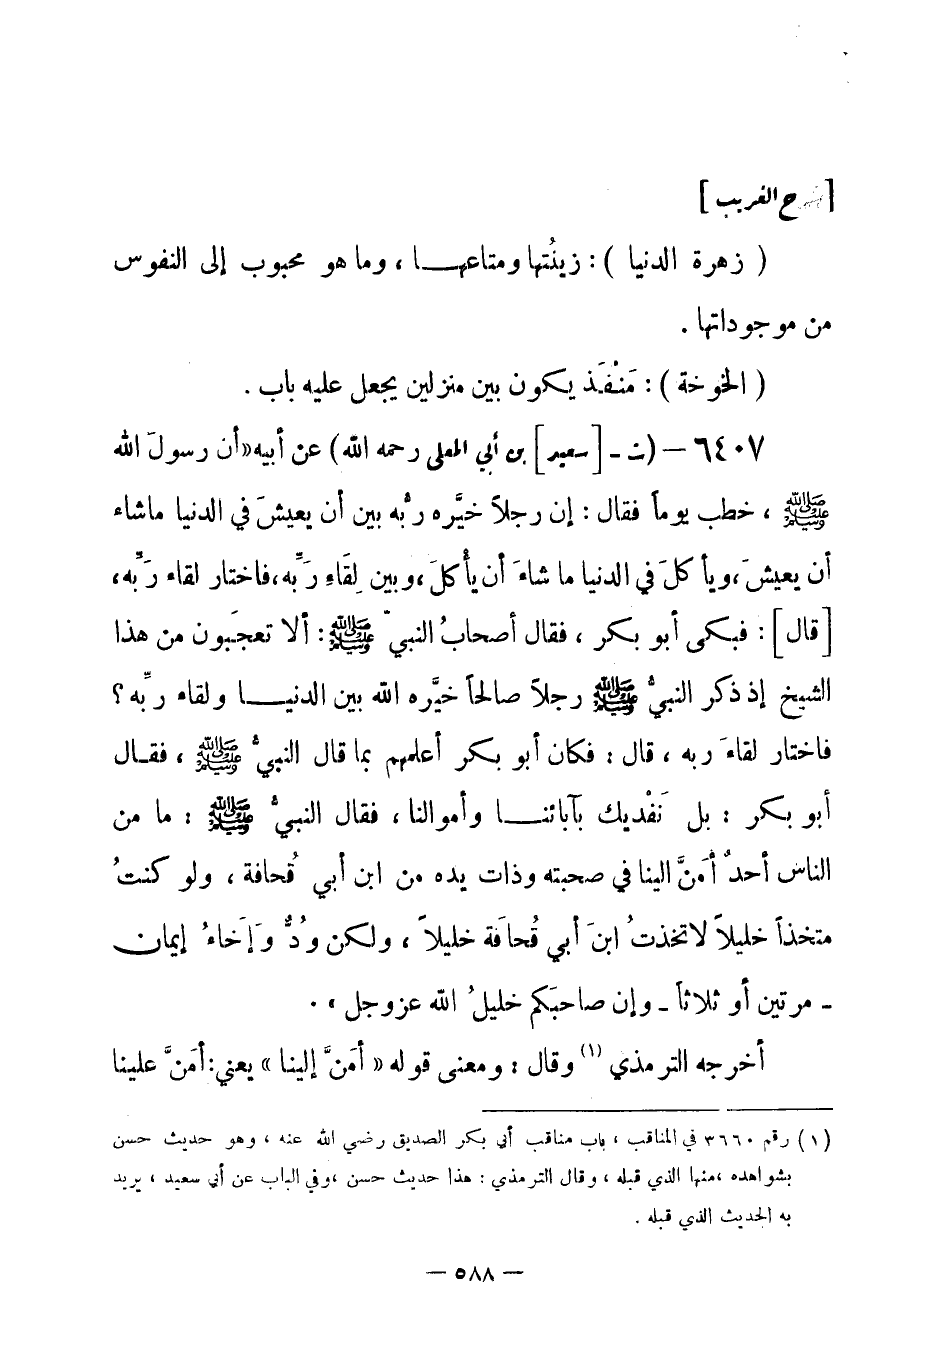 [شرح الغريب]
( زهرة الدنيا ) : زينُتها ومتاعهـــا ، وما هو محبوب إلى النفوس
من موجوداتها .
( الخوخة ) : مَنْفَذ يكون بين منزلين يجعل عليه باب .
٦٤٠٧ – (ت - [سعيد] بن أبي المعلى رحمه الله) عن أبيه «أن رسولَ الله
ﷺ ، خطب يوماً فقال : إن رجلاً خيَّره ربُّه بين أن يعيشَ في الدنيا ماشاء
أن يعيشَ ،ويأكلَ في الدنيا ما شاءَ أن يأْكلَ ،وبين لِقَاءِ رَبِّه ،فاختار لقاء رَبِّه،
[قال] : فبكى أبو بكر ، فقال أصحابُ النبيّ ﷺ : ألا تعجَبون من هذا
الشيخ إذ ذكر النبيُّ ﷺ رجلاً صالحاً خيَّره الله بين الدنيـــا ولقاء ربِّه ؟
فاختار لقاءَ ربه ، قال : فكان أبو بكر أعلمهم بما قال النبيُّ ﷺ ، فقـال
أبو بكر : بل نَفْديك بآبائنـــا وأموالنا ، فقال النبيُّ ﷺ : ما من
الناس أحدٌ أَمَنَّ الينا في صحبته وذات يده من ابن أبي قُحافة ، ولو كنتُ
متخذاً خليلاً لاتخذتُ ابنَ أبي قُحافَة خليلاً ، ولكن وُدٌّ وَإِخاءُ إيمان
- مرتين أو ثلاثاً - وإن صاحبَكم خليلُ الله عزوجل » .
أخرجه الترمذي (١) وقال : ومعنى قوله « أَمَنَّ إلينا » يعني : أمَنَّ علينا
(١) رقم ٣٦٦٠ في المناقب ، باب مناقب أبي بكر الصديق رضي الله عنه ، وهو حديث حسن
بشواهده ،منها الذي قبله ، وقال الترمذي : هذا حديث حسن ،وفي الباب عن أبي سعيد ، يريد
به الحديث الذي قبله .
– ٥٨٨ –